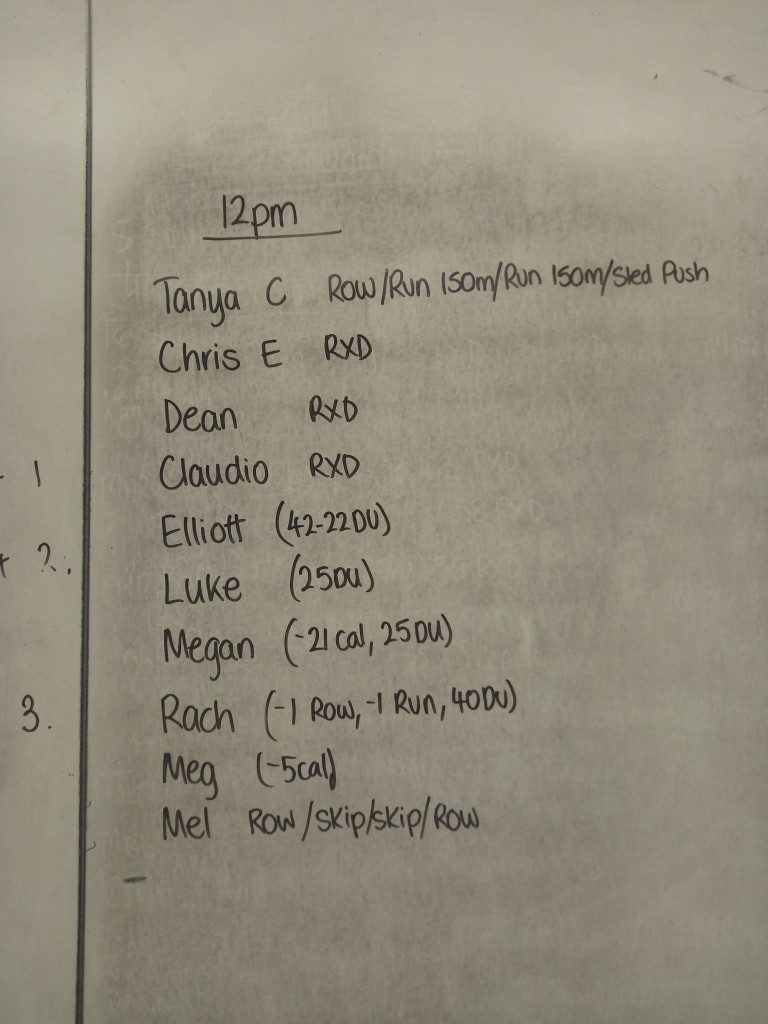 12pm
Tanya C Row/Run 150m/Run 150m/Sled Push
Chris E RXD
Dean RXD
Claudio RXD
Elliott (42-22DU)
Luke (25DU)
Megan (-21 cal, 25DU)
Rach (-1 Row, -1 Run, 40DU)
Meg (-5cal)
Mel Row/Skip/Skip/Row
- 1
2.
3.